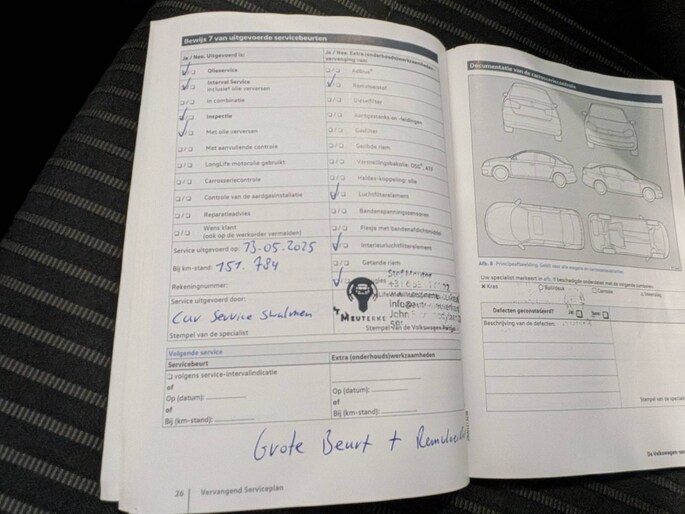 Bewijs 7 van uitgevoerde servicebeurten
Ja / Nee: Uitgevoerd is:
Olieservice
Interval Service
Inclusief olie verversen
In combinatie
Inspectie
Met olie verversen
Met aanvullende controle
LongLife motorolie gebruikt
Carrosseriecontrole
Controle van de aardgasinstallatie
Reparatieadvies
Wens klant
(ook op de werkorder vermelden)
Service uitgevoerd op: 13.05.2025
Bij km-stand: 151.784
Rekeningnummer:
Service uitgevoerd door:
Car Service Swalmen
Stempel van de specialist
Ja / Nee: Extra (onderhouds)werkzaamheden,
vervanging van:
AdBlue®
Remvloeistof
Gasfilter
Getande riem
Verstellingsbakolie: DSG®, ATF
Haldex-koppeling: olie
Luchtfilterelement
Bandenspanningssensoren
Flesje met bandenafdichtmiddel
Interieurluchtfilterelement
Getande riem
MEUTERKE
Stempel van de Volkswagen-
Volgende service
Servicebeurt
volgens service-intervalindicatie
of
Op (datum):
of
Bij (km-stand):
Extra (onderhouds)werkzaamheden
Op (datum):
of
Bij (km-stand):
Grote Beurt +
26 Vervangend Serviceplan
Documentatie van de carrosseriecontrole
Afb. 8 Principeafbeelding: Geldt voor alle wagens en carrosserievarianten
Uw specialist markeert in afb. 8 beschadigde onderdelen met de volgende symbolen:
Defecten geconstateerd?
Beschrijving van de defecten:
Stempel van de specialist
De Volkswagen-